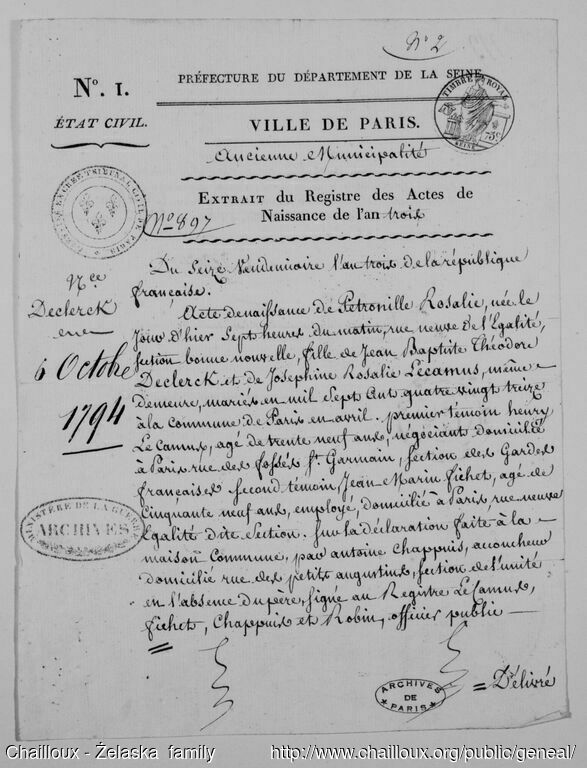 N.° 2
N.° 1.
PRÉFECTURE DU DÉPARTEMENT DE LA SEINE.
TIMBRE ROYAL
SEINE
ÉTAT CIVIL.
VILLE DE PARIS.
Ancienne Municipalité
EXTRAIT du Registre des Actes de
Naissance de l'an trois
N.° 897
Du Seize Vendemiaire l'an trois de la république
française.
Née
Declerck
6 Octobre
1794
Acte de naissance de Petronille Rosalie, née le
Jour d'hier Sept heures du matin, rue neuve de l'Egalité,
section bonne nouvelle, fille de Jean Baptiste Théodore
Declerck et de Josephine Rosalie Lecamus, même
demeure, mariés en mil Sept Cent quatre vingt treize
à la Commune de Paris en avril. premier témoin henry
LeCamus, agé de trente neuf ans, négociant domicilié
à Paris rue des fossés St. Germain, section des Gardes
françaises second témoin Jean Marin fichet, agé de
Cinquante neuf ans, employé, domicilié à Paris, rue neuve
Egalité dite Section. Sur la déclaration faite à la
maison Commune, par antoine Chappuis, accoucheur
domicilié rue des petits augustins, section de l'unité
en l'absence du père, signé au Registre LeCamus,
fichet, Chappuis et Robin, officier public
MINISTÈRE DE LA GUERRE
ARCHIVES
ARCHIVES
DE
PARIS
= Délivré
Chailloux - Želaska family http://www.chailloux.org/public/geneal/